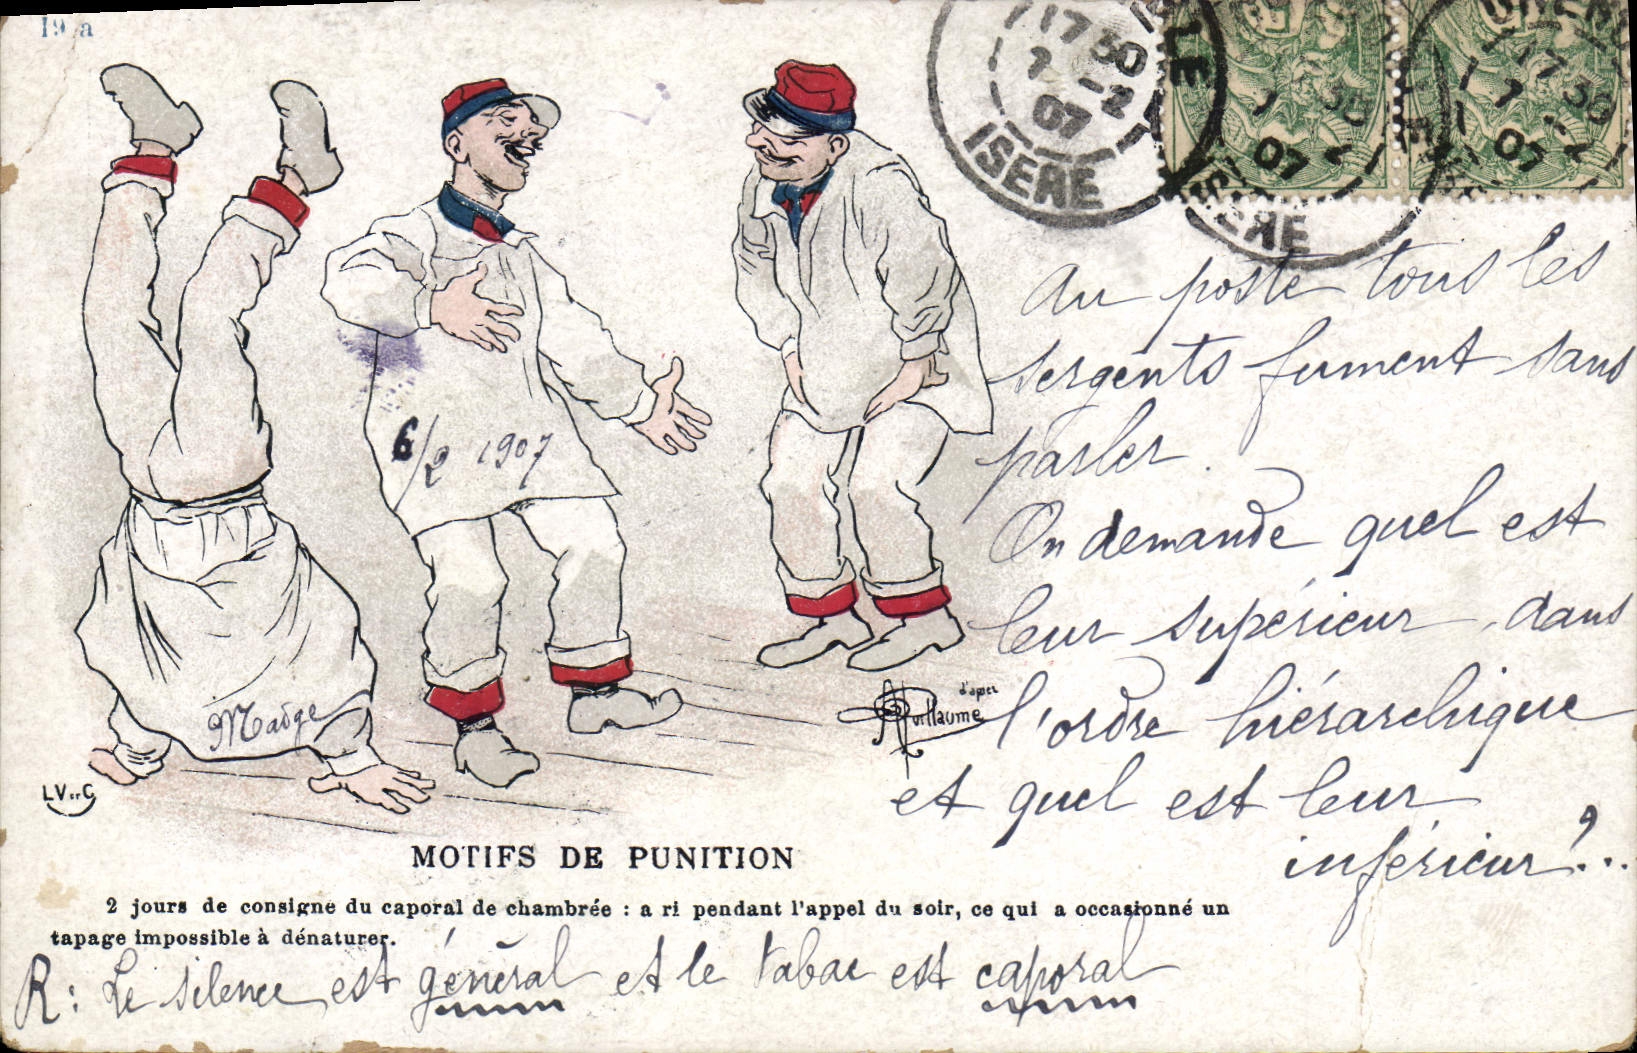 19 a
17 30
7 -2
07
ISERE
ISERE
17 30
7 -2
07
Au poste tous les
sergents fument sans
parler.
On demande quel est
leur supérieur, dans
l'ordre hiérarchique
et quel est leur
inférieur?...
6/2 1907
Madge
d'après
A Guillaume
LV et C
MOTIFS DE PUNITION
2 jours de consigne du caporal de chambrée : a ri pendant l'appel du soir, ce qui a occasionné un
tapage impossible à dénaturer.
R: Le silence est général et le tabac est caporal